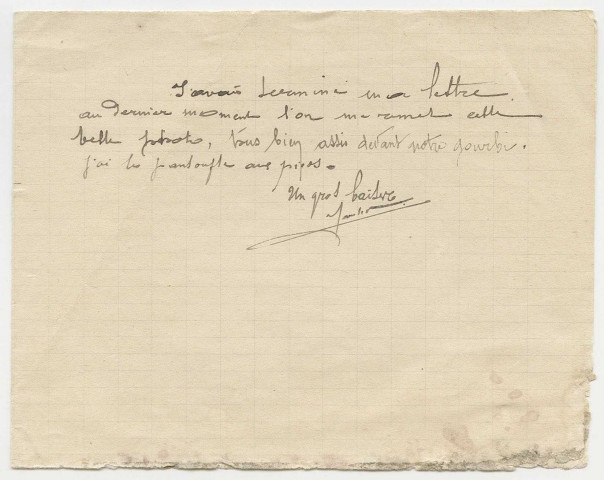 J'avais terminé ma lettre
au dernier moment l'on me remet cette
belle photo, tous bien assis devant notre gourbi.
j'ai les pantoufle aux pieds.
Un gros baiser